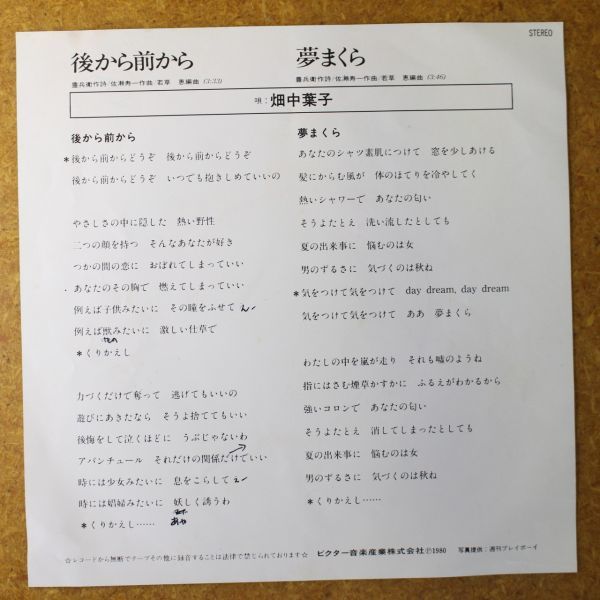 STEREO
後から前から
豊兵衛作詩/佐瀬寿一作曲/若草 恵編曲 (3:33)
夢まくら
豊兵衛作詩/佐瀬寿一作曲/若草 恵編曲 (3:46)
唄：畑中葉子
後から前から
＊後から前からどうぞ 後から前からどうぞ
後から前からどうぞ いつでも抱きしめていいの
やさしさの中に隠した 熱い野性
二つの顔を持つ そんなあなたが好き
つかの間の恋に おぼれてしまっていい
あなたのその胸で 燃えてしまっていい
例えば子供みたいに その瞳をふせて
例えば獣みたいに 激しい仕草で
＊くりかえし
力づくだけで奪って 逃げてもいいの
遊びにあきたなら そうよ捨ててもいい
後悔をして泣くほどに うぶじゃないわ
アバンチュール それだけの関係だけでいい
時には少女みたいに 息をこらして
時には娼婦みたいに 妖しく誘うわ
あや
＊くりかえし……
夢まくら
あなたのシャツ素肌につけて 窓を少しあける
髪にからむ風が 体のほてりを冷やしてく
熱いシャワーで あなたの匂い
そうよたとえ 洗い流したとしても
夏の出来事に 悩むのは女
男のずるさに 気づくのは秋ね
＊気をつけて気をつけて day dream, day dream
気をつけて気をつけて ああ 夢まくら
わたしの中を嵐が走り それも嘘のようね
指にはさむ煙草かすかに ふるえがわかるから
強いコロンで あなたの匂い
そうよたとえ 消してしまったとしても
夏の出来事に 悩むのは女
男のずるさに 気づくのは秋ね
＊くりかえし……
☆レコードから無断でテープその他に録音することは法律で禁じられております☆
ビクター音楽産業株式会社Ⓟ1980
写真提供：週刊プレイボーイ